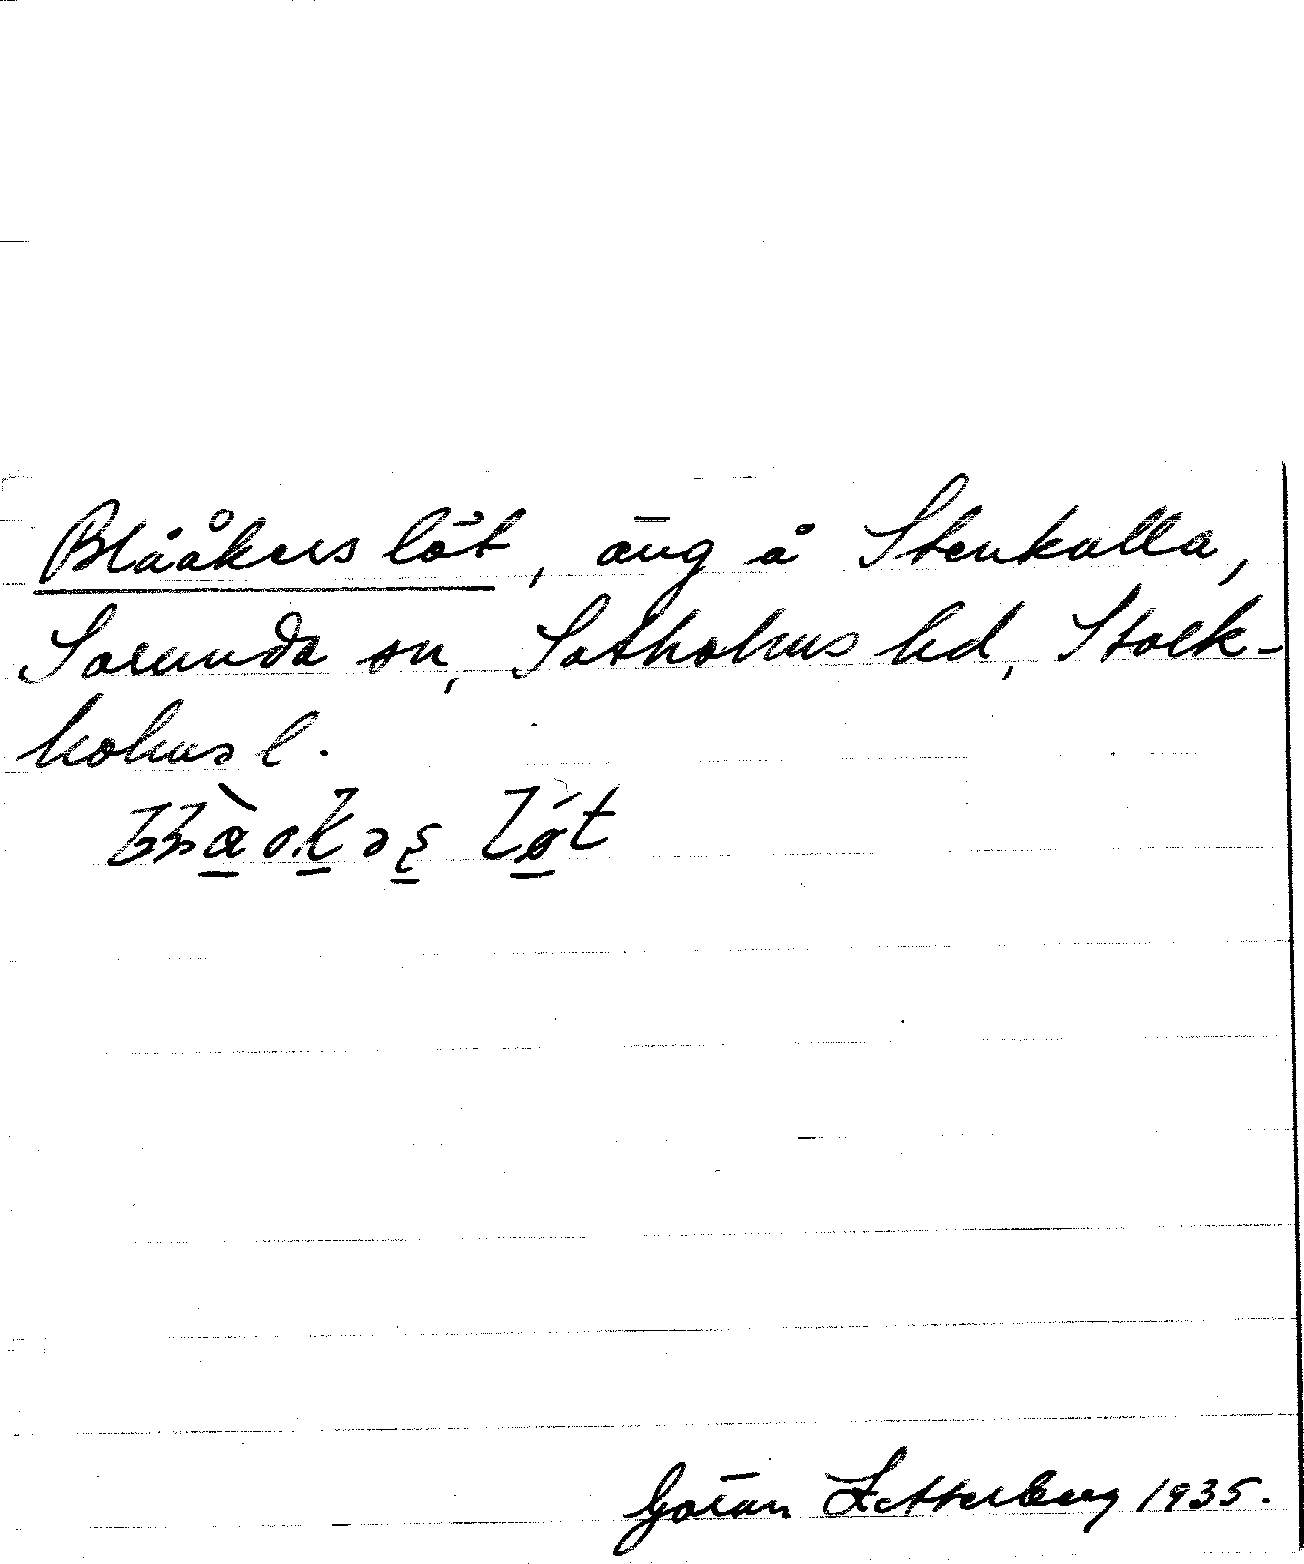 Blååkers löt, äng å Stenkalla,
Sorunda sn, Sotholms hd, Stock-
holms l.
Göran Zetterberg 1935.